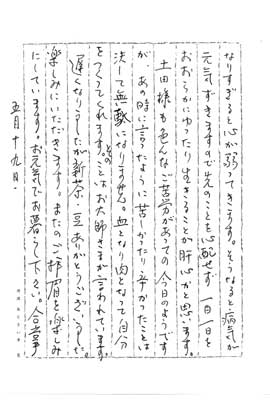 なりすぎると心が弱ってきます。そうなると病気が
元気ずきますので先のことを心配せず一日一日を
おおらかにゆったり生きることが肝心かと思います。
土田様も色んなご苦労があっての今日のようです
が、あの時に言ったように苦しかったり辛かったことは
決して無駄になりません。血となり肉となって自分
をつくってくれます。とのことはお大師さまが言われています。
遅くなりましたが新茶、豆ありがとうございました。
楽しみにいただきます。またのご拝眉を楽しみ
にしています。お元気でお暮し下さい。合掌
五月十九日